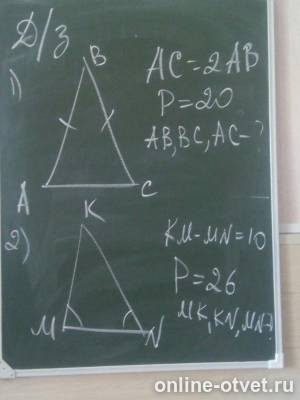 Д/з
1)
B
A
C
AC=2AB
P=20
AB,BC,AC-?
2)
K
M
N
KM-MN=10
P=26
MK,KN,MN-?
online-otvet.ru